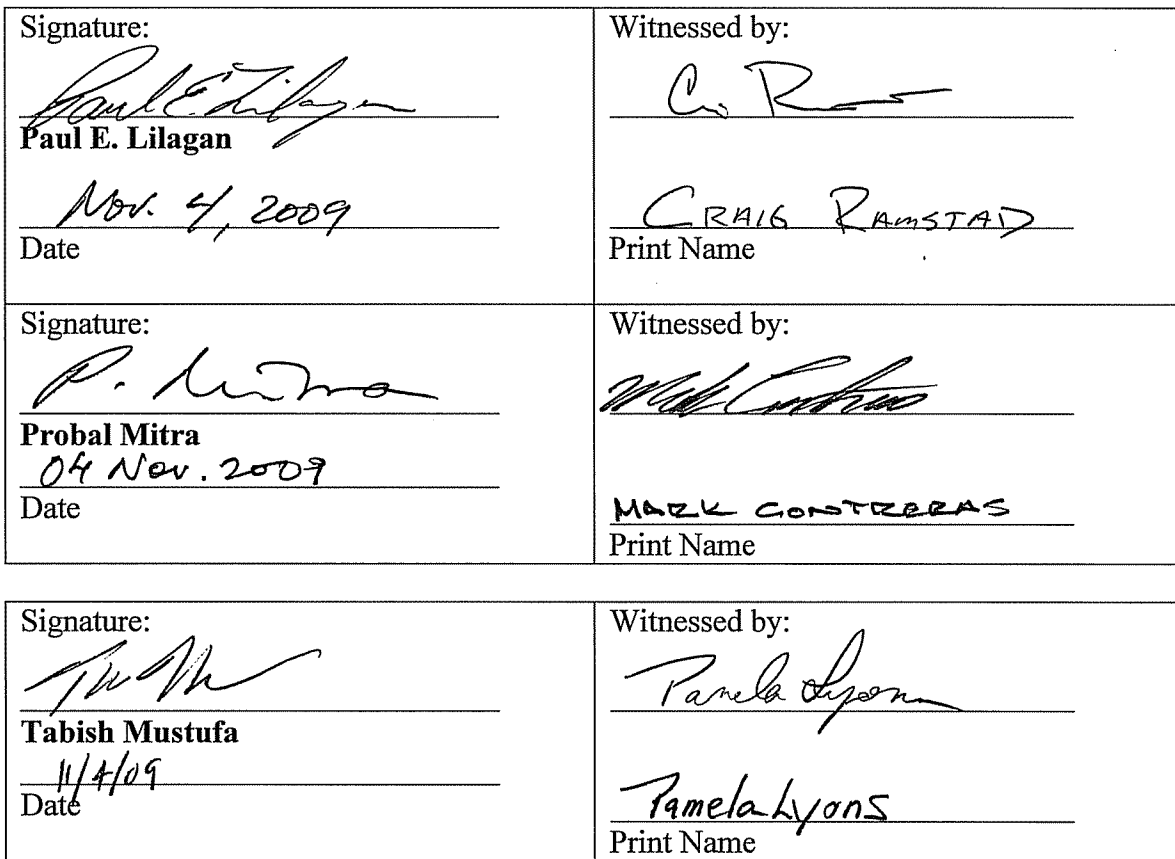 Signature:
Paul E. Lilagan
Paul E. Lilagan
Nov. 4, 2009
Date
Witnessed by:
CRAIG RAMSTAD
Print Name
Signature:
P. Mitra
Probal Mitra
04 Nov. 2009
Date
Witnessed by:
Mark Contreras
MARK CONTRERAS
Print Name
Signature:
Tabish Mustufa
11/4/09
Date
Witnessed by:
Pamela Lyons
Pamela Lyons
Print Name